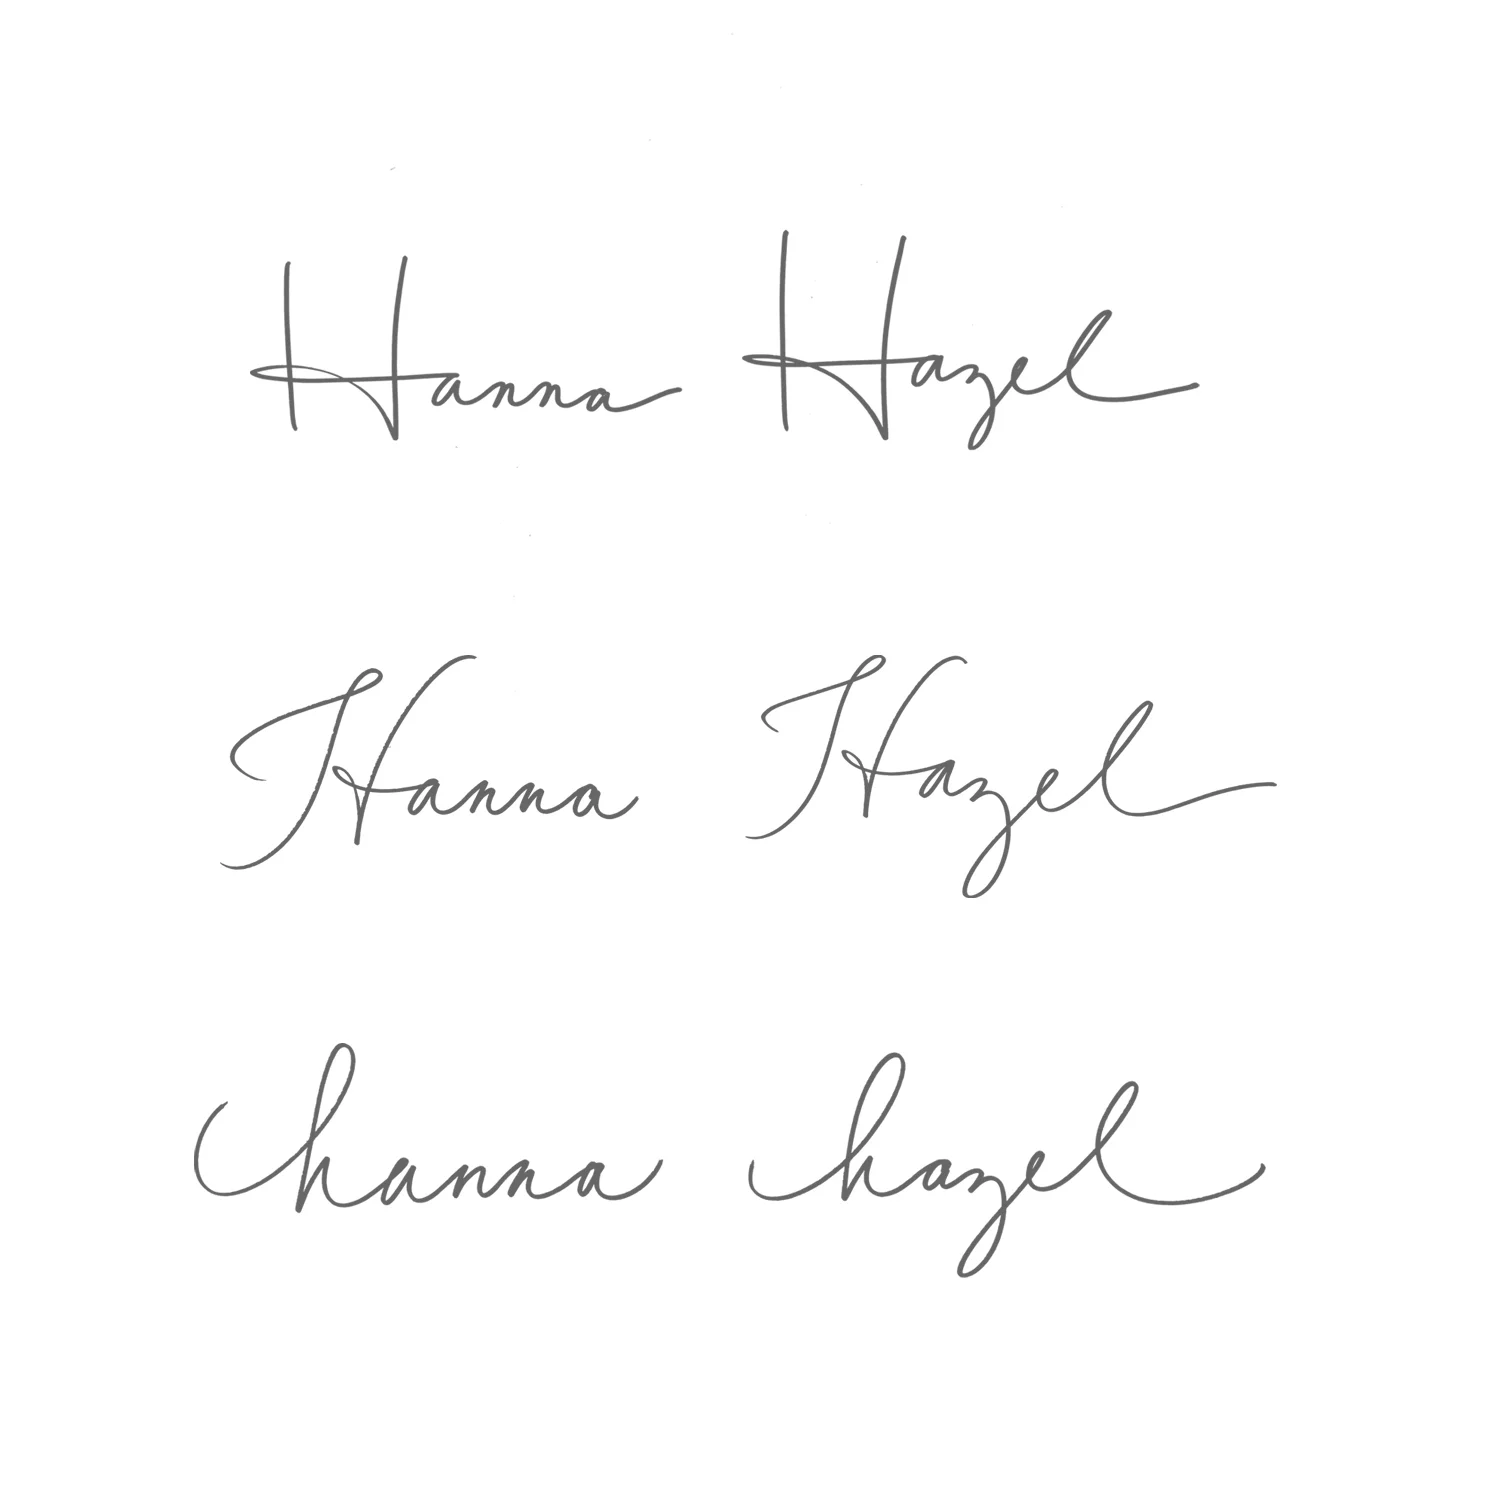 Hanna Hazel
Hanna Hazel
hanna hazel